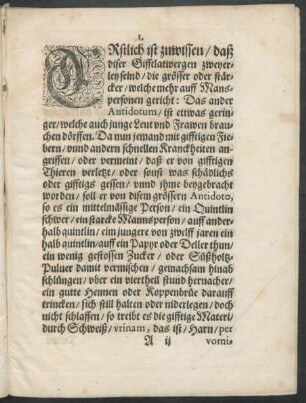 1.
ERstlich ist zuwissen / daß
diser Gifftlatwergen zweyer-
ley seind / die grösser oder stär-
cker / welche mehr auff Mans-
personen gericht: Das ander
Antidotum, ist etwas gerin-
ger / welche auch junge Leut vnd Frawen brau-
chen dörffen. Da nun jemand mit gifftigen Fie-
bern / vnnd andern schnellen Kranckheiten an-
griffen / oder vermeint / daß er von gifftigen
Thieren verletzt / oder sonst was schädlichs
oder gifftigs gessen / vnnd ihme beygebracht
worden / soll er von disem grössern Antidoto,
so es ein mittelmässige Person / ein Quintlin
schwer / ein starcke Mannsperson / auff ander-
halb quintlin / ein jungere von zwölff jaren ein
halb quintlin / auff ein Papyr oder Deller thun /
ein wenig gestossen Zucker / oder Süßholtz-
Puluer damit vermischen / gemachsam hinab
schlüngen / vber ein viertheil stund hernacher /
ein gutte Hennen oder Koppenbrüe darauff
trincken / sich still halten oder niderlegen / doch
nicht schlaffen / so treibt es die gifftige Materi /
durch Schweiß / vrinam, das ist / Harn / per
A ij
vomi-